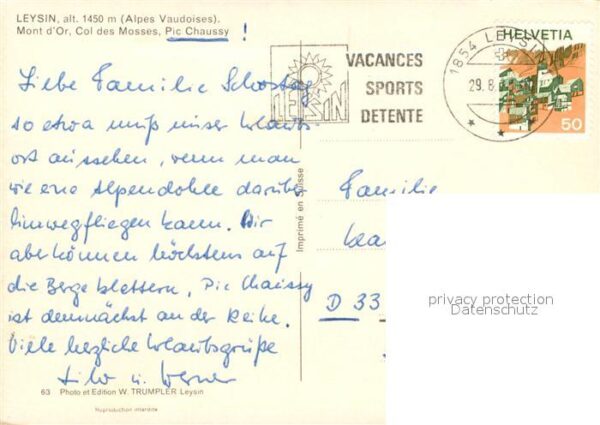 LEYSIN, alt. 1450 m (Alpes Vaudoises).
Mont d'Or, Col des Mosses, Pic Chaussy !
Liebe Familie
so etwa muß unser Urlaubs-
ort aussehen, wenn man
wie eine Alpendohle darüber
hinwegfliegen kann. Wir
aber können höchstens auf
die Berge klettern, Pic Chaussy
ist demnächst an der Reihe.
Viele herzliche Urlaubsgrüße
u. Werner
LEYSIN
VACANCES
SPORTS
DETENTE
1854 LEYSIN
29.8.
HELVETIA
50
Imprimé en Suisse
Familie
D 33
privacy protection
Datenschutz
63 Photo et Edition W. TRUMPLER Leysin
Reproduction interdite